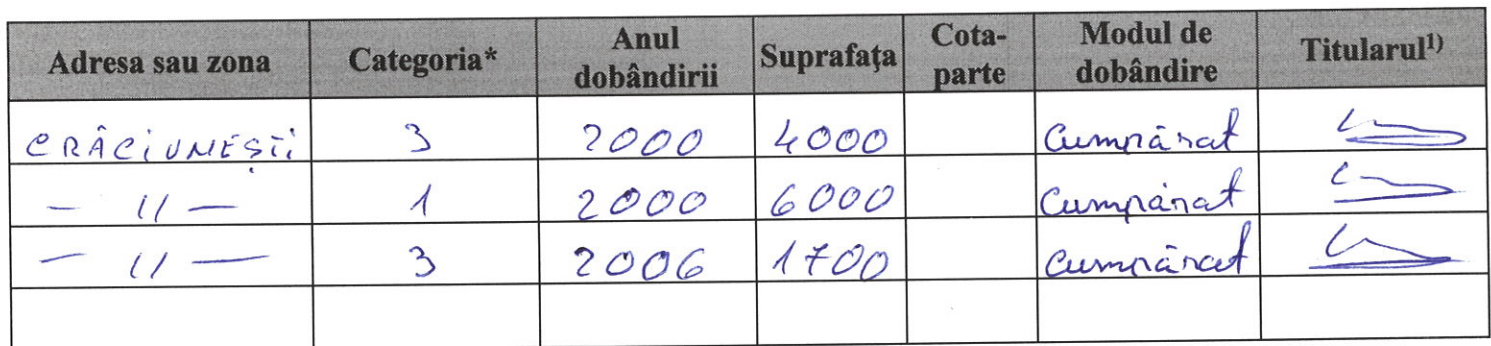 Adresa sau zona Categoria* Anul dobândirii Suprafața Cota-parte Modul de dobândire Titularul¹⁾
CRÂCIUNEȘTI 3 2000 4000 Cumpărat
— 11 — 1 2000 6000 Cumpărat
— 11 — 3 2006 1700 Cumpărat